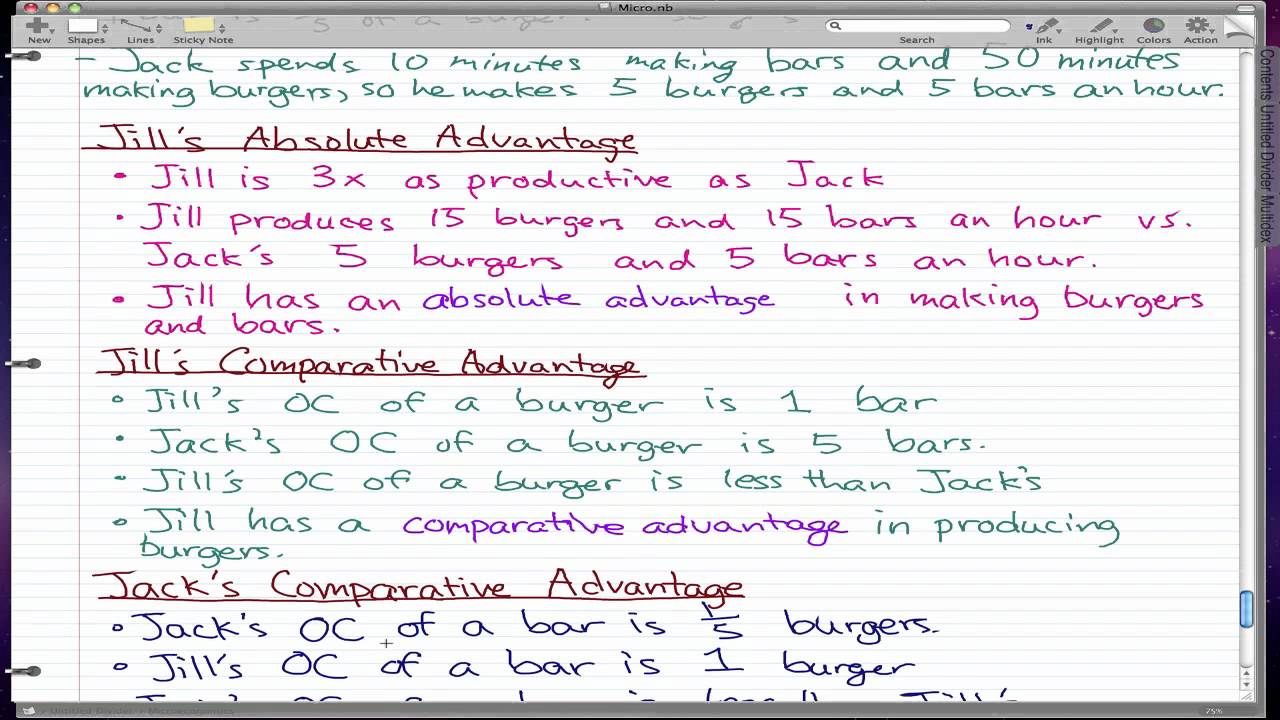 Micro.nb
New
Shapes
Lines
Sticky Note
Search
Ink
Highlight
Colors
Action
- Jack spends 10 minutes making bars and 50 minutes
making burgers, so he makes 5 burgers and 5 bars an hour.
Jill's Absolute Advantage
• Jill is 3x as productive as Jack
• Jill produces 15 burgers and 15 bars an hour vs.
Jack's 5 burgers and 5 bars an hour.
• Jill has an absolute advantage in making burgers
and bars.
Jill's Comparative Advantage
• Jill's OC of a burger is 1 bar
• Jack's OC of a burger is 5 bars.
• Jill's OC of a burger is less than Jack's
• Jill has a comparative advantage in producing
burgers.
Jack's Comparative Advantage
• Jack's OC of a bar is 1/5 burgers.
• Jill's OC of a bar is 1 burger
Contents Untitled Divider Multidex
Untitled Divider › Microeconomics
75%